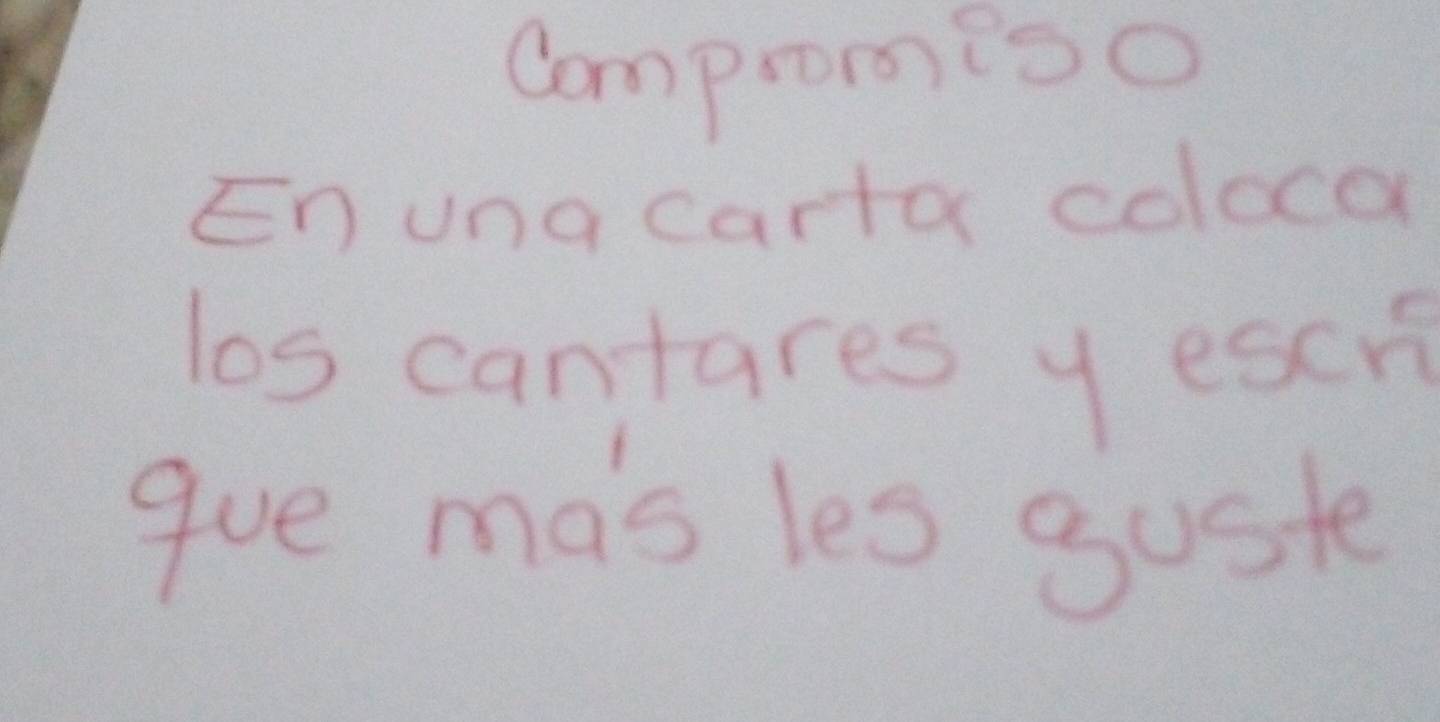 Compromiso
En una carta coloca
los cantares y escri
que más les guste